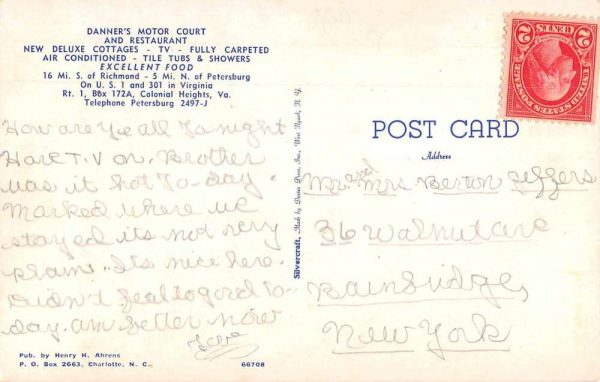 DANNER'S MOTOR COURT
AND RESTAURANT
NEW DELUXE COTTAGES - TV - FULLY CARPETED
AIR CONDITIONED - TILE TUBS & SHOWERS
EXCELLENT FOOD
16 Mi. S. of Richmond - 5 Mi. N. of Petersburg
On U. S. 1 and 301 in Virginia
Rt. 1, Box 172A, Colonial Heights, Va.
Telephone Petersburg 2497-J
How are Ye all To night
Have T.V on. Brother
was it hot To-day.
Marked where we
stayed its not very
plain. Its nice here.
Didn't feel to good to-
day. am better now
Love
Pub. by Henry H. Ahrens
P. O. Box 2663, Charlotte, N. C.
66708
Silvercraft, Made by Dexter Press, Inc., West Nyack, N. Y.
UNITED STATES POSTAGE
2 CENTS 2
POST CARD
Address
Mr. and Mrs Berton Seffers
36 Walnut ave
Bainbridge,
New York